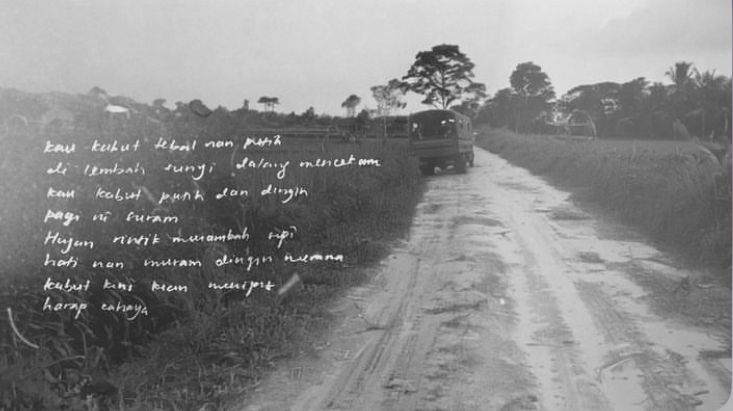 kau kabut tebal nan putih
di lembah sungi datang mencekam
kau kabut putih dan dingin
pagi ni suram
Hujan rintik merambah sepi
hati nan muram dingin merana
kabut kini kian menipis
harap cahaya